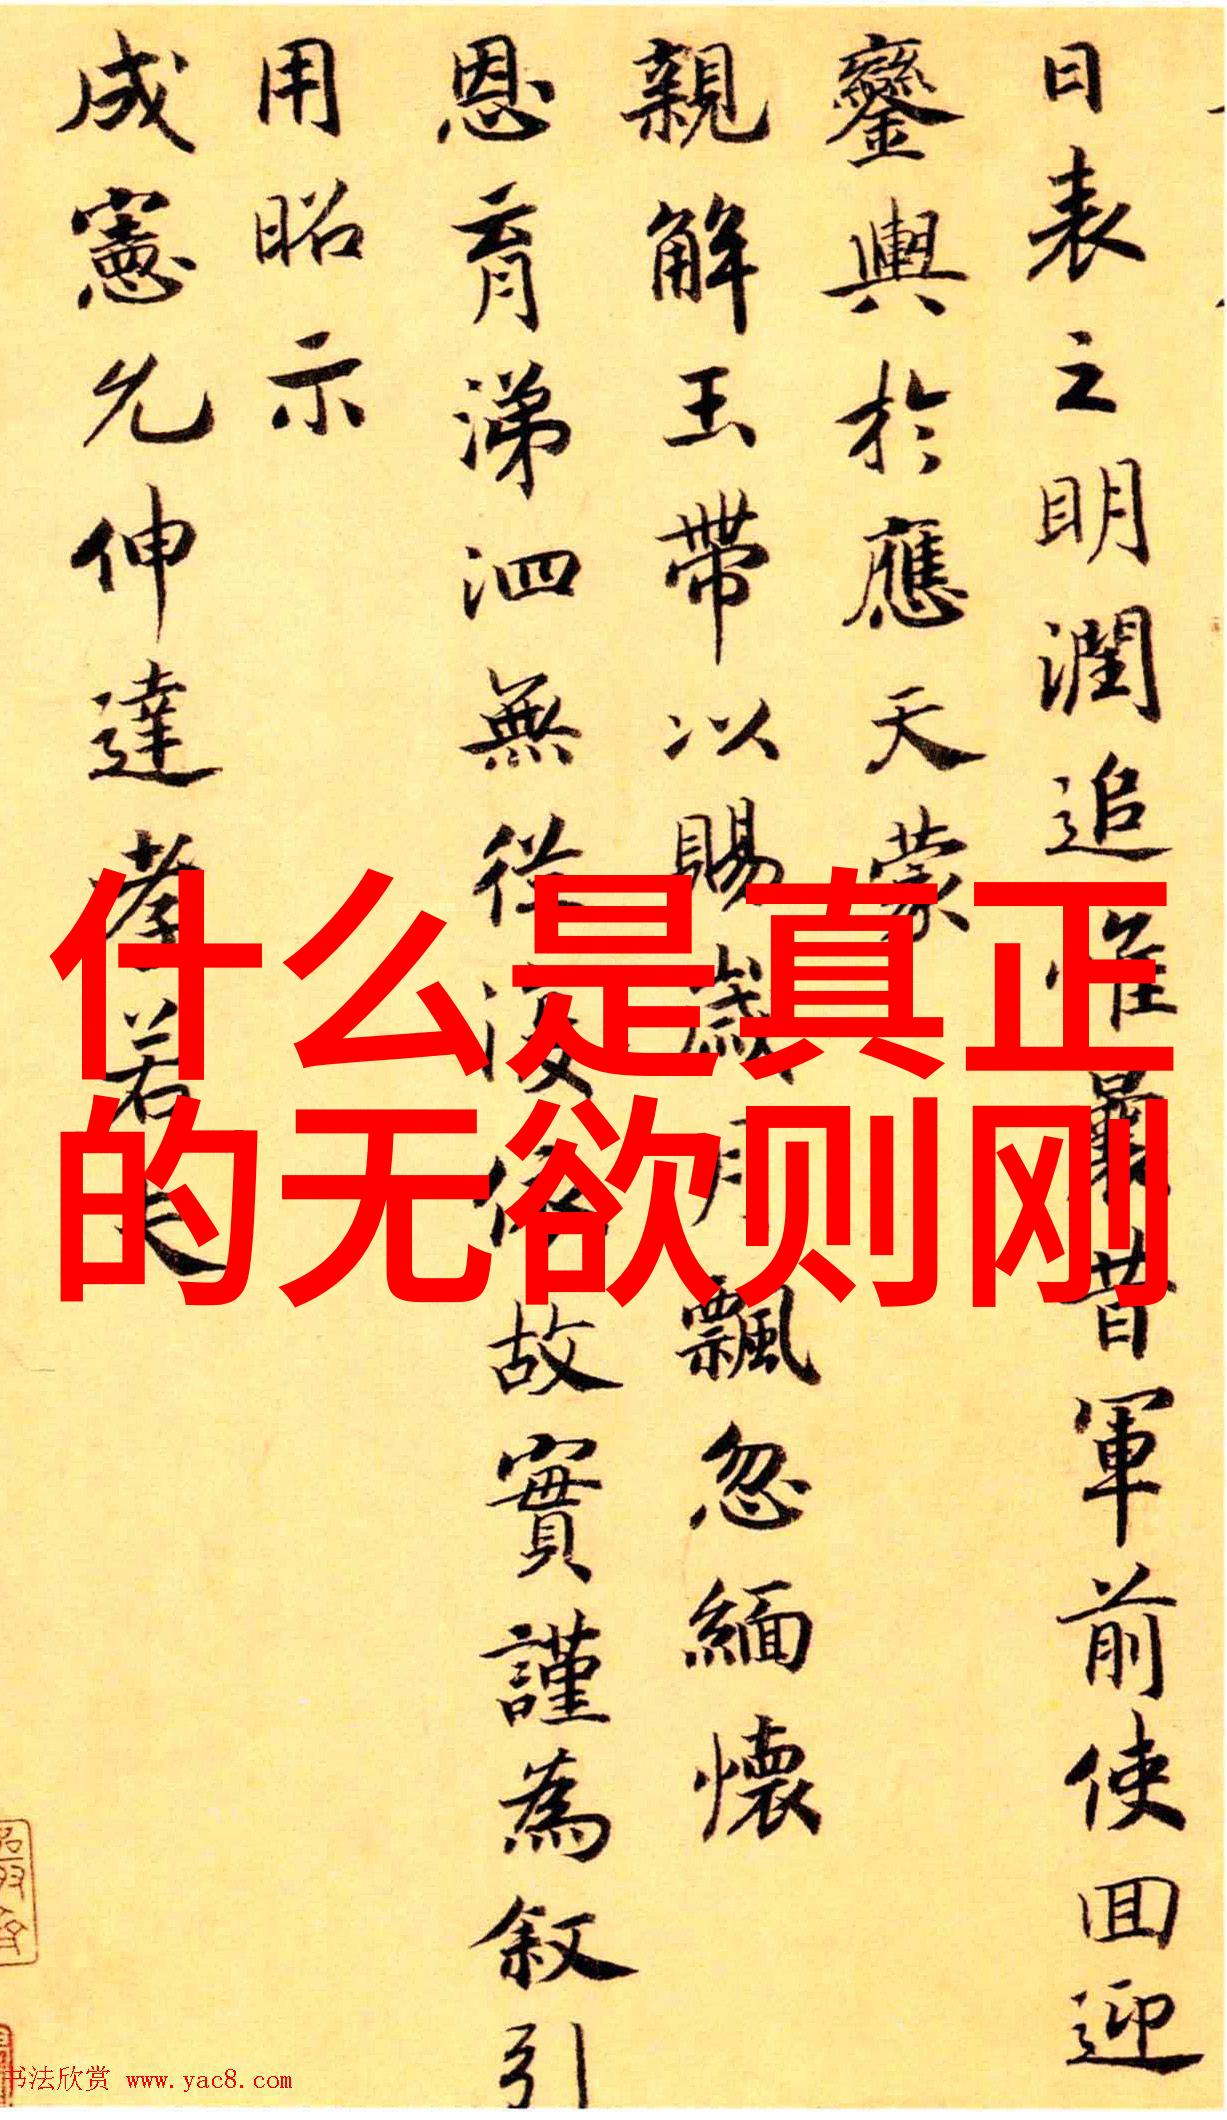 日表之明潤追惟曩昔軍前使回迎
鑾輿於應天蒙
親解玉帶以賜歲月飄忽緬懷
恩育涕泗無從後
故實謹為叙引
用昭示
成憲允伸達孝若夫
什么是真正
的无欲则刚
书法欣赏 www.yac8.com